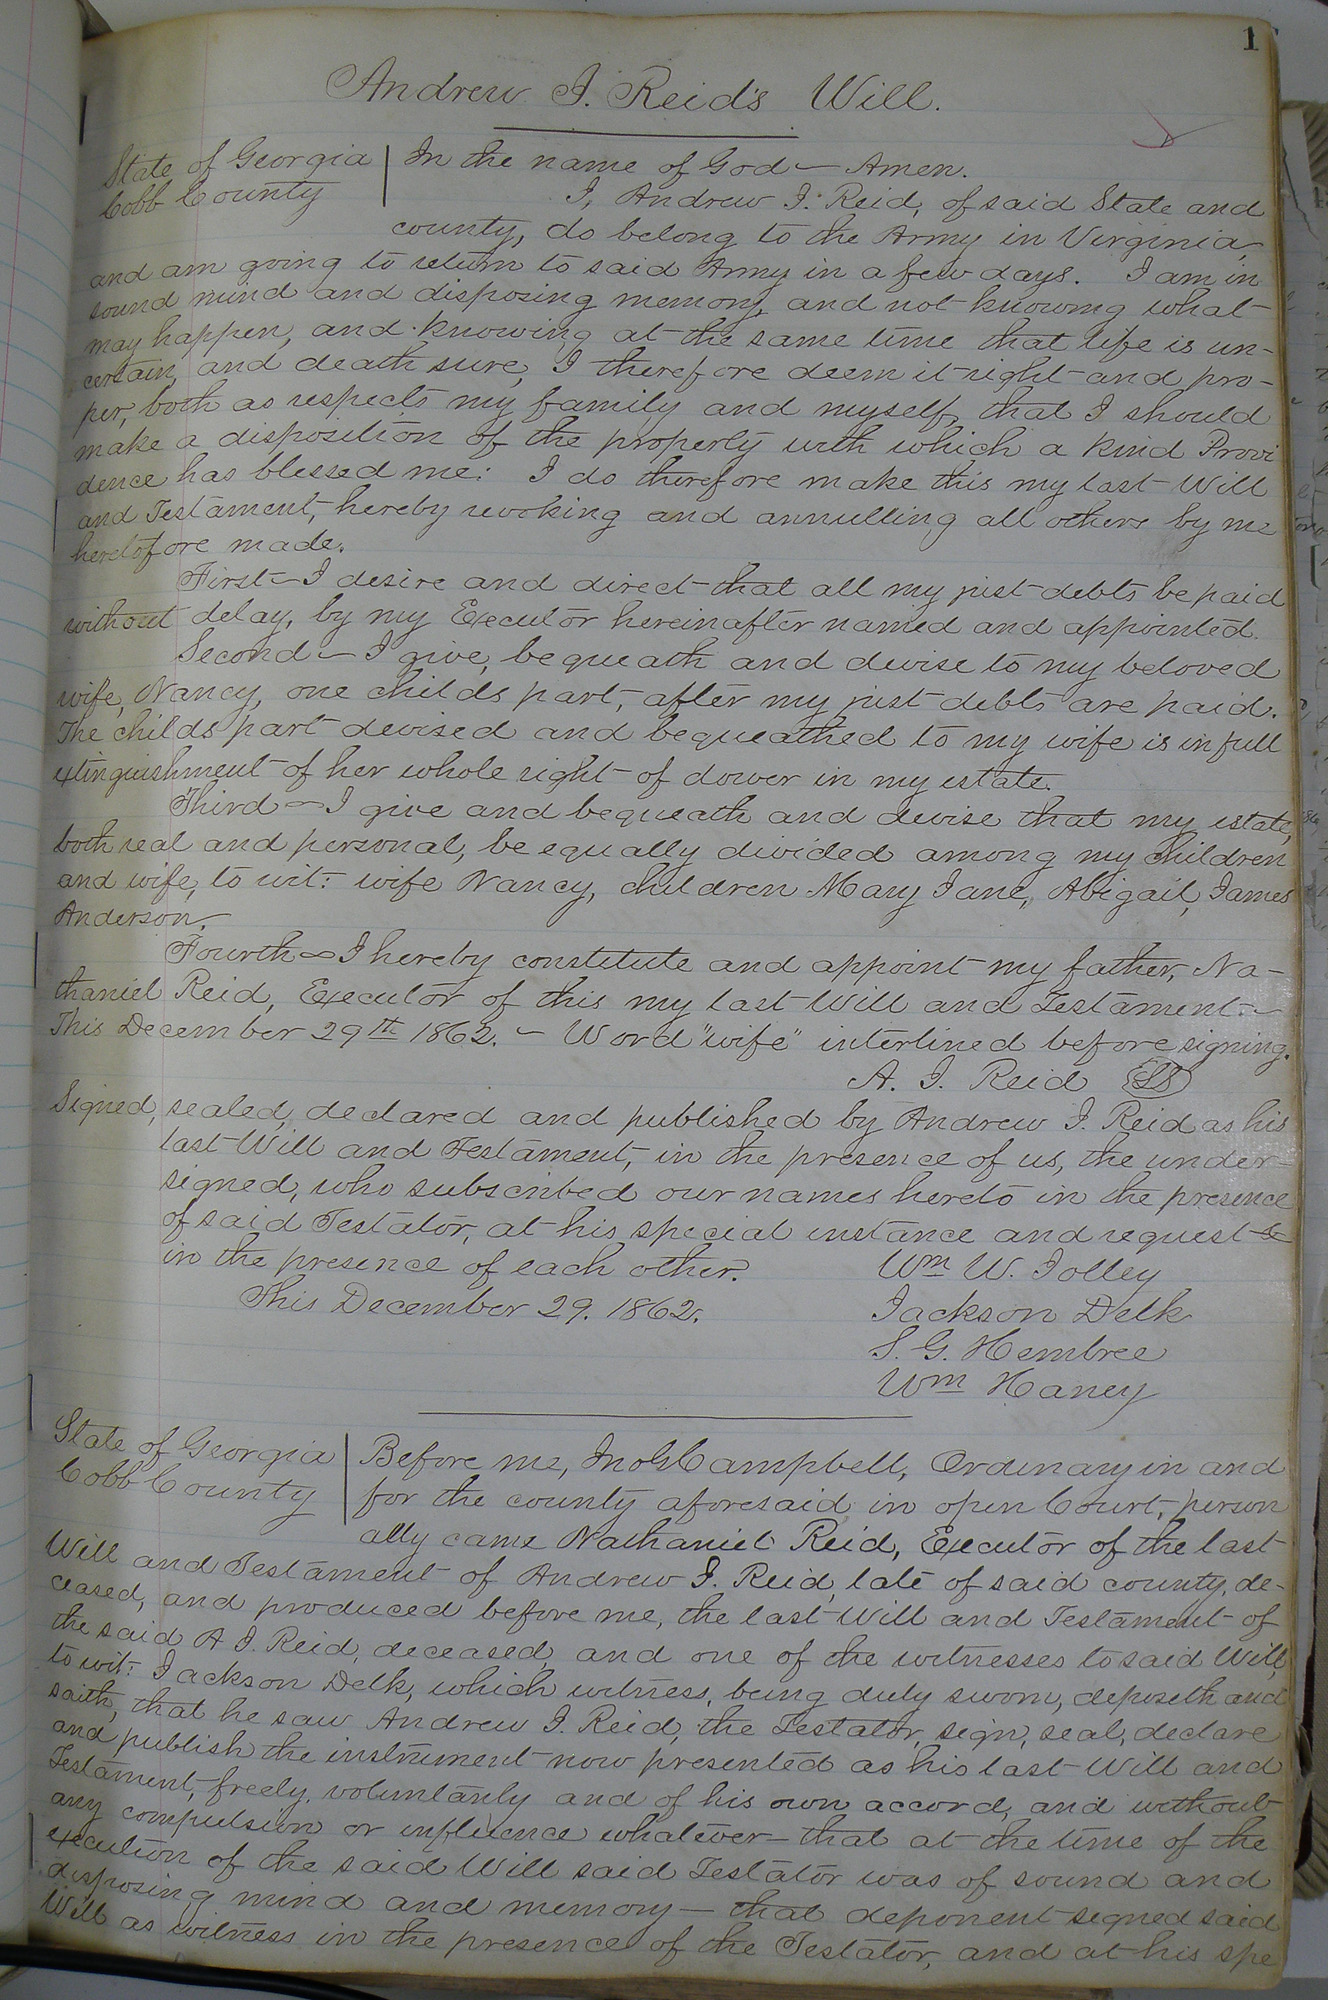 1
Andrew J. Reid's Will.
State of Georgia
Cobb County
In the name of God — Amen.
I, Andrew J. Reid, of said State and
county, do belong to the Army in Virginia,
and am going to return to said Army in a few days. I am in
sound mind and disposing memory, and not knowing what
may happen, and knowing at the same time that life is un-
certain, and death sure, I therefore deem it right and pro-
per, both as respects my family and myself, that I should
make a disposition of the property with which a kind Provi
dence has blessed me: I do therefore make this my last Will
and Testament, hereby revoking and annulling all others by me
heretofore made.
First — I desire and direct that all my just debts be paid
without delay, by my Executor hereinafter named and appointed.
Second — I give, bequeath and devise to my beloved
wife, Nancy, one childs part, after my just debts are paid.
The childs part devised and bequeathed to my wife is in full
extinguishment of her whole right of dower in my estate.
Third — I give and bequeath and devise that my estate,
both real and personal, be equally divided among my children
and wife, to wit: wife Nancy, children Mary Jane, Abigail, James
Anderson.
Fourth — I hereby constitute and appoint my father, Na-
thaniel Reid, Executor of this my last Will and Testament. —
This December 29th 1862. — Word "wife" interlined before signing.
A. J. Reid LS
Signed, sealed, declared and published by Andrew J. Reid as his
last Will and Testament, in the presence of us, the under-
signed, who subscribed our names hereto in the presence
of said Testator, at his special instance and request &
in the presence of each other.
This December 29. 1862.
Wm W. Jolley
Jackson Delk
S. G. Hembree
Wm Haney
State of Georgia
Cobb County
Before me, Jno G Campbell, Ordinary in and
for the county aforesaid in open Court, person
ally came Nathaniel Reid, Executor of the last
Will and Testament of Andrew J. Reid, late of said county, de-
ceased, and produced before me, the last Will and Testament of
the said A J. Reid, deceased, and one of the witnesses to said Will,
to wit: Jackson Delk, which witness, being duly sworn, deposeth and
saith, that he saw Andrew J. Reid, the Testator, sign, seal, declare
and publish the instrument now presented as his last Will and
Testament, freely, voluntarily and of his own accord, and without
any compulsion or influence whatever — that at the time of the
execution of the said Will said Testator was of sound and
disposing mind and memory — that deponent signed said
Will as witness in the presence of the Testator, and at his spe